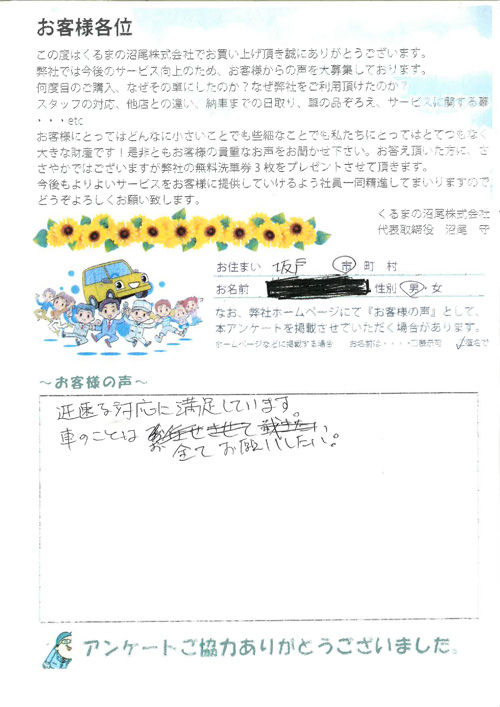 お客様各位
この度はくるまの沼尾株式会社でお買い上げ頂き誠にありがとうございます。
弊社では今後のサービス向上のため、お客様からの声を大募集しております。
何度目のご購入、なぜその車にしたのか？なぜ弊社をご利用頂けたのか？
スタッフの対応、他店との違い、納車までの日取り、車の品ぞろえ、サービスに関する
・・・etc
お客様にとってはどんなに小さいことでも些細なことでも私たちにとってはとてつもなく
大きな財産です！是非ともお客様の貴重なお声をお聞かせ下さい。お答え頂いた方に、さ
さやかではございますが弊社の無料洗車券３枚をプレゼントさせて頂きます。
今後もよりよいサービスをお客様に提供していけるよう社員一同精進してまいりますので
どうぞよろしくお願い致します。
くるまの沼尾株式会社
代表取締役　沼尾　守
お住まい 坂戸 市 町 村
お名前 性別 男・女
なお、弊社ホームページにて『お客様の声』として、
本アンケートを掲載させていただく場合があります。
ホームページなどに掲載する場合 お名前は・・・・□表示可 匿名で
～お客様の声～
迅速な対応に満足しています。
車のことは お任せさせて戴きたい
全てお願いしたい。
アンケートご協力ありがとうございました。